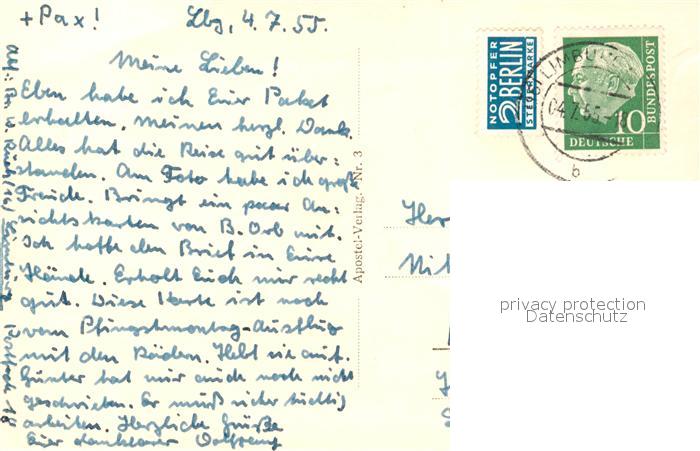 + Pax! Lbg, 4.7.55.
Meine Lieben!
Eben habe ich Euer Paket
erhalten. Meinen herzl. Dank.
Alles hat die Reise gut über-
standen. Am Foto habe ich große
Freude. Bringt ein paar An-
sichtskarten von B. Orb mit.
Ich hoffe den Brief in Eure
Hände. Erholt Euch nur recht
gut. Diese Karte ist noch
vom Pfingstmontag-Ausflug
mit den Rädern. Hebt sie auf.
Günter hat mir auch noch nicht
geschrieben. Er muß sicher tüchtig
arbeiten. Herzliche Grüße
Euer dankbarer Wolfgang
Abs: Br. W.
Limburg
Postfach 18
Apostel-Verlag, Nr. 3
NOTOPFER
2 BERLIN
STEUERMARKE
LIMBURG
04.7.55
10
DEUTSCHE
BUNDESPOST
b
Her
privacy protection
Datenschutz